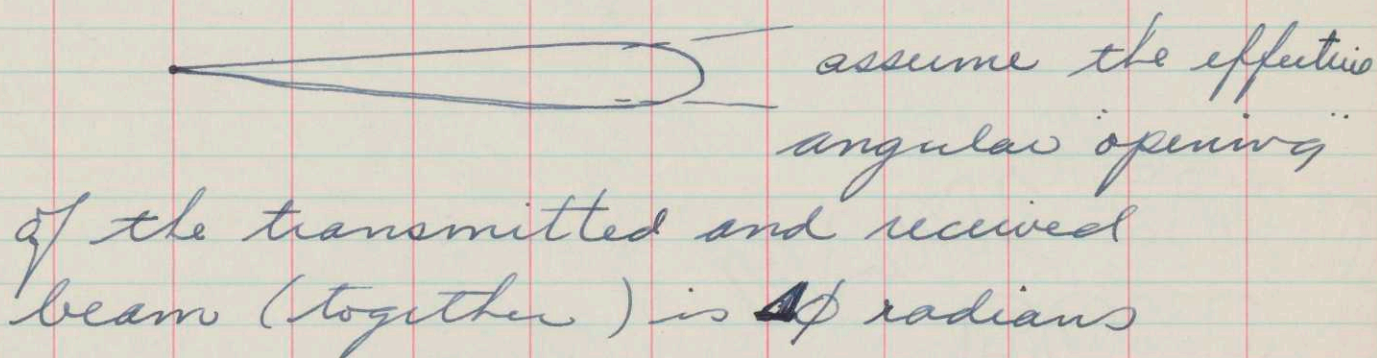 assume the effective
angular "opening"
of the transmitted and received
beam (together) is Δφ radians